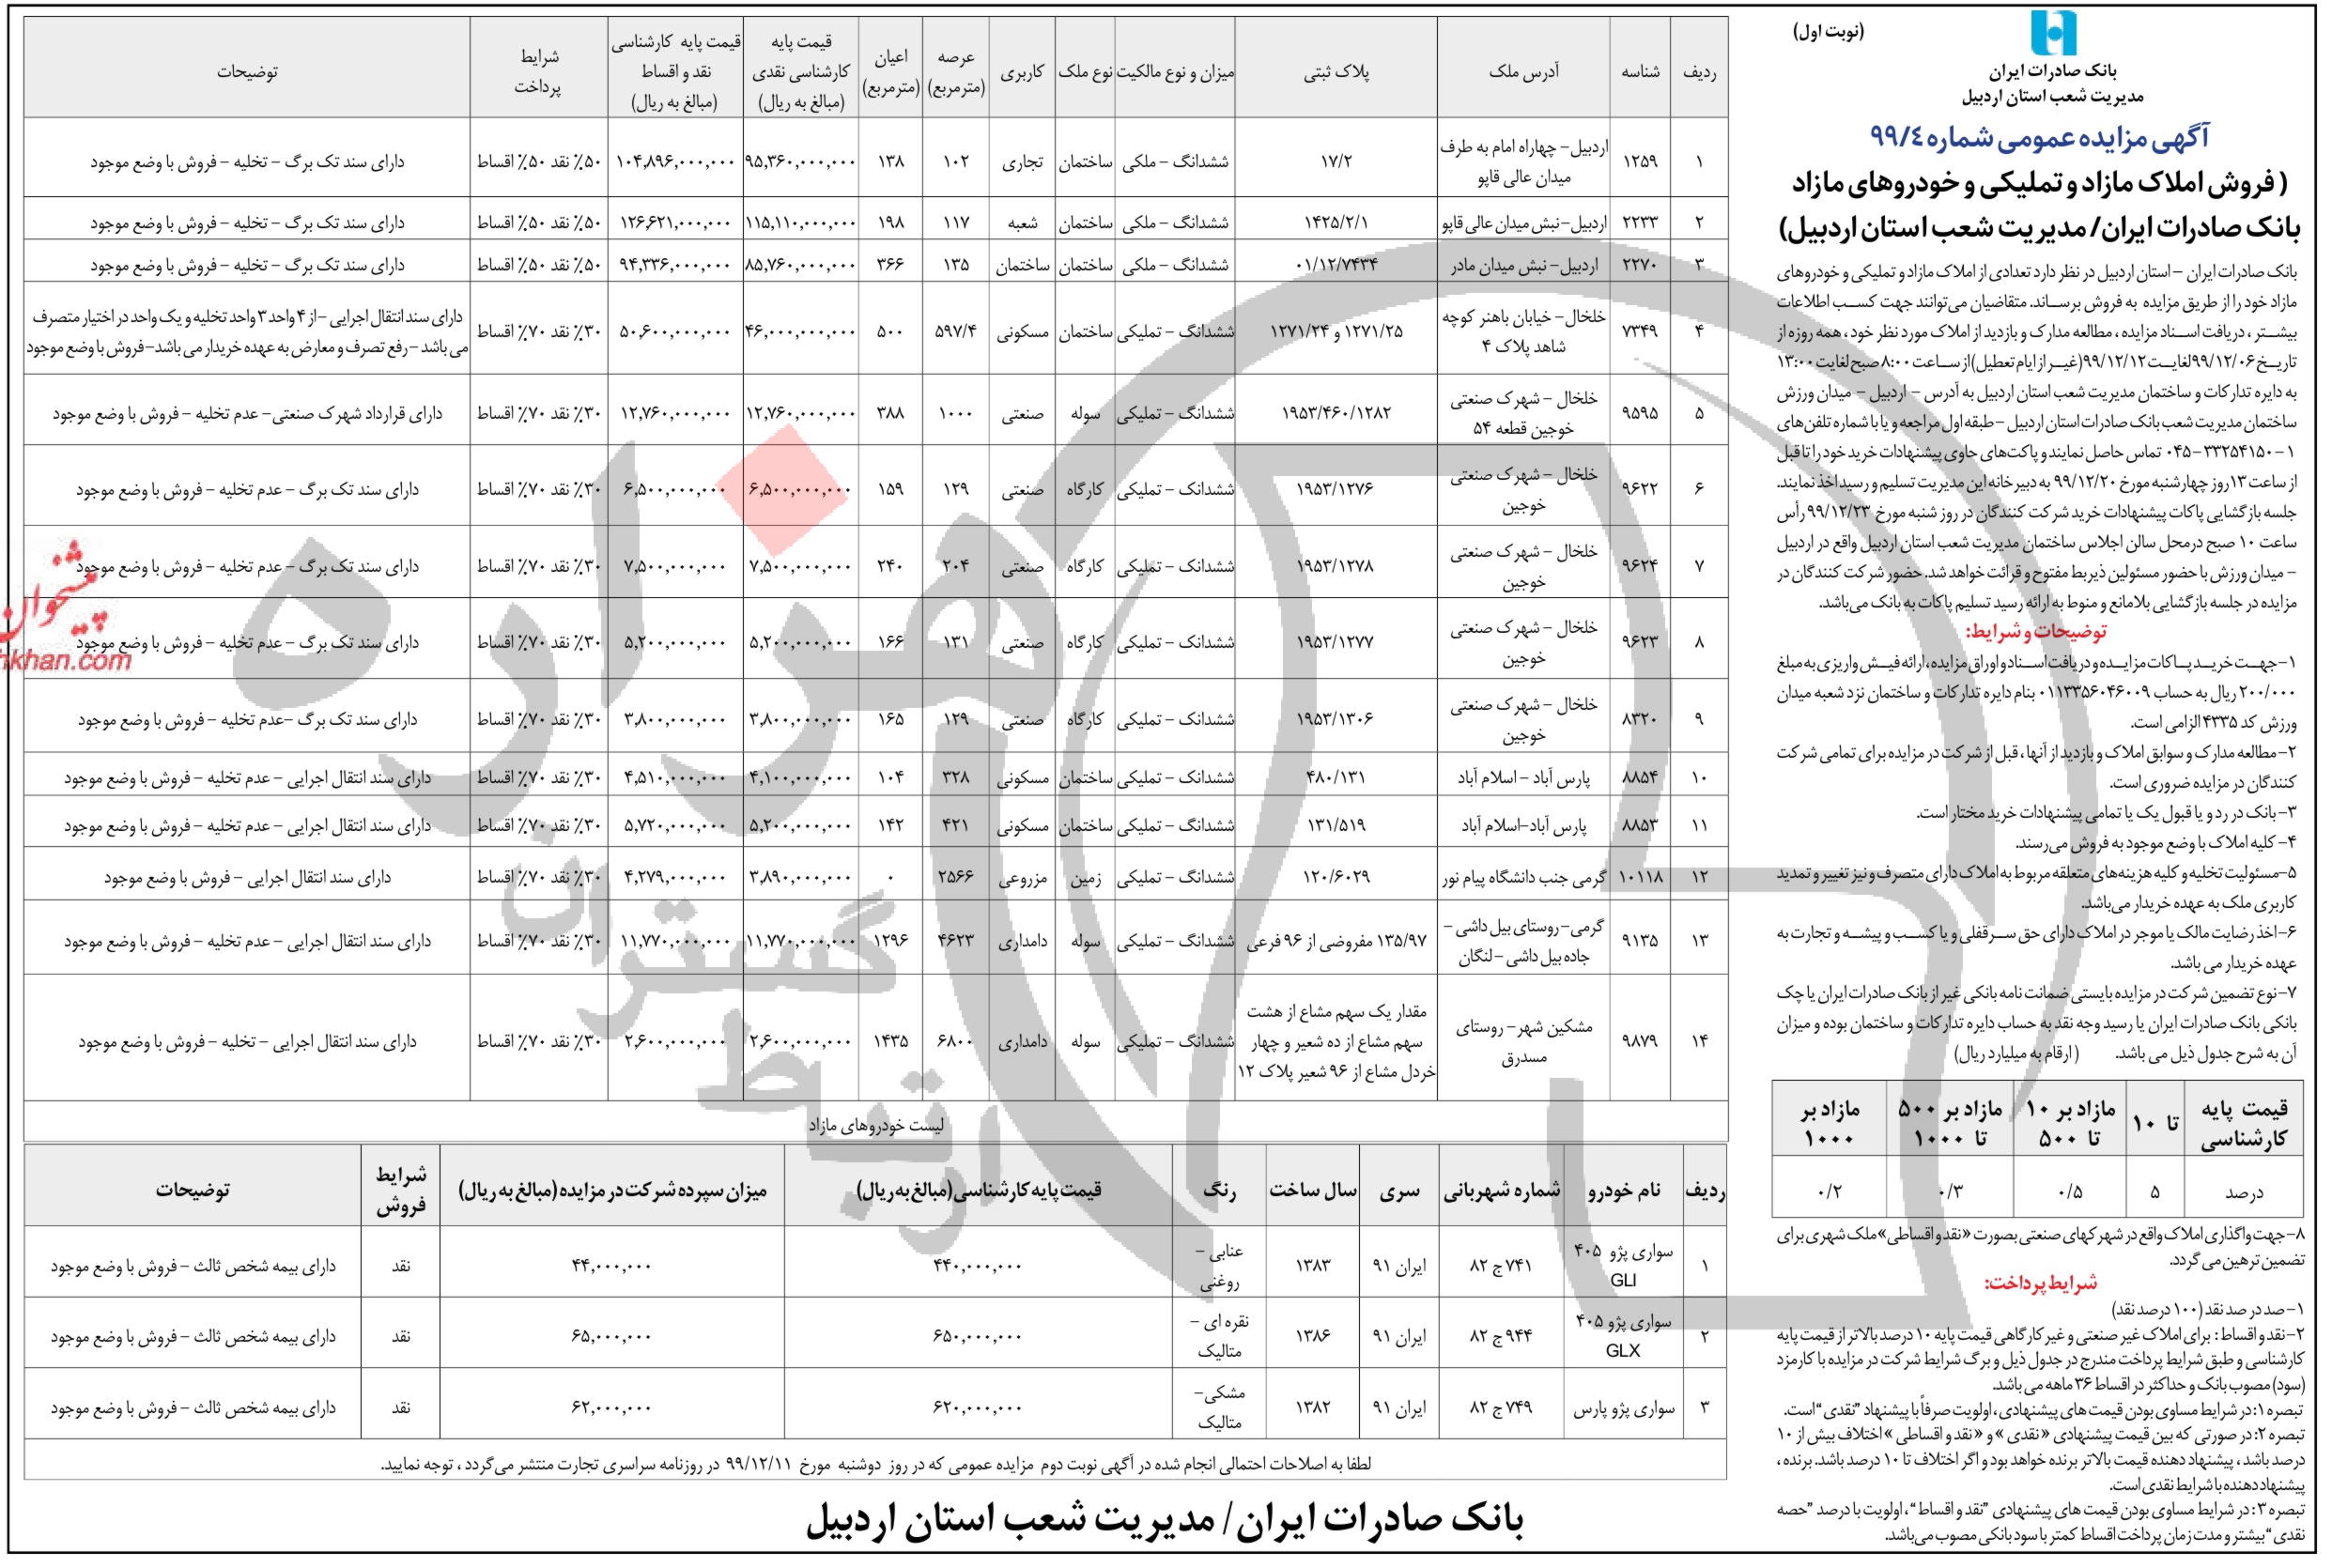 (نوبت اول)
بانک صادرات ایران
مدیریت شعب استان اردبیل
آگهی مزایده عمومی شماره ۹۹/۴
( فروش املاک مازاد و تملیکی و خودروهای مازاد
بانک صادرات ایران/ مدیریت شعب استان اردبیل)
بانک صادرات ایران –استان اردبیل در نظر دارد تعدادی از املاک مازاد و تملیکی و خودروهای
مازاد خود را از طریق مزایده به فروش برساند. متقاضیان می‌توانند جهت کسب اطلاعات
بیشتر ، دریافت اسناد مزایده ، مطالعه مدارک و بازدید از املاک مورد نظر خود ، همه روزه از
تاریخ ۹۹/۱۲/۰۶لغایت ۹۹/۱۲/۱۲(غیر از ایام تعطیل)از ساعت ۸:۰۰صبح لغایت ۱۳:۰۰
به دایره تدارکات و ساختمان مدیریت شعب استان اردبیل به آدرس – اردبیل – میدان ورزش
ساختمان مدیریت شعب بانک صادرات استان اردبیل –طبقه اول مراجعه و یا با شماره تلفن‌های
۱-۳۳۲۵۴۱۵۰-۰۴۵ تماس حاصل نمایند و پاکت‌های حاوی پیشنهادات خرید خود را تا قبل
از ساعت ۱۳روز چهارشنبه مورخ ۹۹/۱۲/۲۰ به دبیرخانه این مدیریت تسلیم و رسید اخذ نمایند.
جلسه بازگشایی پاکات پیشنهادات خرید شرکت کنندگان در روز شنبه مورخ ۹۹/۱۲/۲۳رأس
ساعت ۱۰ صبح درمحل سالن اجلاس ساختمان مدیریت شعب استان اردبیل واقع در اردبیل
– میدان ورزش با حضور مسئولین ذیربط مفتوح و قرائت خواهد شد. حضور شرکت کنندگان در
مزایده در جلسه بازگشایی بلامانع و منوط به ارائه رسید تسلیم پاکات به بانک می‌باشد.
توضیحات و شرایط:
۱–جهت خرید پاکات مزایده و دریافت اسناد و اوراق مزایده، ارائه فیش واریزی به مبلغ
۲۰۰/۰۰۰ ریال به حساب ۰۱۱۳۳۵۶۰۴۶۰۰۹ بنام دایره تدارکات و ساختمان نزد شعبه میدان
ورزش کد ۴۳۳۵ الزامی است.
۲–مطالعه مدارک و سوابق املاک و بازدید از آنها ، قبل از شرکت در مزایده برای تمامی شرکت
کنندگان در مزایده ضروری است.
۳–بانک در رد و یا قبول یک یا تمامی پیشنهادات خرید مختار است.
۴– کلیه املاک با وضع موجود به فروش می‌رسند.
۵–مسئولیت تخلیه و کلیه هزینه‌های متعلقه مربوط به املاک دارای متصرف و نیز تغییر و تمدید
کاربری ملک به عهده خریدار می‌باشد.
۶–اخذ رضایت مالک یا موجر در املاک دارای حق سرقفلی و یا کسب و پیشه و تجارت به
عهده خریدار می باشد.
۷–نوع تضمین شرکت در مزایده بایستی ضمانت نامه بانکی غیر از بانک صادرات ایران یا چک
بانکی بانک صادرات ایران یا رسید وجه نقد به حساب دایره تدارکات و ساختمان بوده و میزان
آن به شرح جدول ذیل می باشد. (ارقام به میلیارد ریال)
قیمت پایه کارشناسی | تا ۱۰ | مازاد بر ۱۰ تا ۵۰۰ | مازاد بر ۵۰۰ تا ۱۰۰۰ | مازاد بر ۱۰۰۰
درصد | ۵ | ۰/۵ | ۰/۳ | ۰/۲
۸–جهت واگذاری املاک واقع در شهرکهای صنعتی بصورت «نقد و اقساطی» ملک شهری برای
تضمین ترهین می گردد.
شرایط پرداخت:
۱–صد در صد نقد (۱۰۰ درصد نقد)
۲–نقد و اقساط : برای املاک غیر صنعتی و غیر کارگاهی قیمت پایه ۱۰ درصد بالاتر از قیمت پایه
کارشناسی و طبق شرایط پرداخت مندرج در جدول ذیل و برگ شرایط شرکت در مزایده با کارمزد
(سود) مصوب بانک و حداکثر در اقساط ۳۶ ماهه می باشد.
تبصره ۱: در شرایط مساوی بودن قیمت های پیشنهادی ، اولویت صرفاً با پیشنهاد "نقدی" است.
تبصره ۲: در صورتی که بین قیمت پیشنهادی «نقدی » و «نقد و اقساطی » اختلاف بیش از ۱۰
درصد باشد ، پیشنهاد دهنده قیمت بالاتر برنده خواهد بود و اگر اختلاف تا ۱۰ درصد باشد. برنده ،
پیشنهاد دهنده با شرایط نقدی است.
تبصره ۳: در شرایط مساوی بودن قیمت های پیشنهادی "نقد و اقساط" ، اولویت با درصد "حصه
نقدی" بیشتر و مدت زمان پرداخت اقساط کمتر با سود بانکی مصوب می‌باشد.
ردیف | شناسه | آدرس ملک | پلاک ثبتی | میزان و نوع مالکیت | نوع ملک | کاربری | عرصه (مترمربع) | اعیان (مترمربع) | قیمت پایه کارشناسی نقدی (مبالغ به ریال) | قیمت پایه کارشناسی نقد و اقساط (مبالغ به ریال) | شرایط پرداخت | توضیحات
۱ | ۱۲۵۹ | اردبیل– چهاراه امام به طرف میدان عالی قاپو | ۱۷/۲ | ششدانگ – ملکی | ساختمان | تجاری | ۱۰۲ | ۱۳۸ | ۹۵,۳۶۰,۰۰۰,۰۰۰ | ۱۰۴,۸۹۶,۰۰۰,۰۰۰ | ۵۰٪ نقد ۵۰٪ اقساط | دارای سند تک برگ – تخلیه – فروش با وضع موجود
۲ | ۲۲۳۳ | اردبیل–نبش میدان عالی قاپو | ۱۴۲۵/۲/۱ | ششدانگ – ملکی | ساختمان | شعبه | ۱۱۷ | ۱۹۸ | ۱۱۵,۱۱۰,۰۰۰,۰۰۰ | ۱۲۶,۶۲۱,۰۰۰,۰۰۰ | ۵۰٪ نقد ۵۰٪ اقساط | دارای سند تک برگ – تخلیه – فروش با وضع موجود
۳ | ۲۲۷۰ | اردبیل– نبش میدان مادر | ۰۱/۱۲/۷۴۳۴ | ششدانگ – ملکی | ساختمان | ساختمان | ۱۳۵ | ۳۶۶ | ۸۵,۷۶۰,۰۰۰,۰۰۰ | ۹۴,۳۳۶,۰۰۰,۰۰۰ | ۵۰٪ نقد ۵۰٪ اقساط | دارای سند تک برگ – تخلیه – فروش با وضع موجود
۴ | ۷۳۴۹ | خلخال– خیابان باهنر کوچه شاهد پلاک ۴ | ۱۲۷۱/۲۵ و ۱۲۷۱/۲۴ | ششدانگ – تملیکی | ساختمان | مسکونی | ۵۹۷/۴ | ۵۰۰ | ۴۶,۰۰۰,۰۰۰,۰۰۰ | ۵۰,۶۰۰,۰۰۰,۰۰۰ | ۳۰٪ نقد ۷۰٪ اقساط | دارای سند انتقال اجرایی –از ۴ واحد ۳ واحد تخلیه و یک واحد در اختیار متصرف می باشد – رفع تصرف و معارض به عهده خریدار می باشد–فروش با وضع موجود
۵ | ۹۵۹۵ | خلخال – شهرک صنعتی خوجین قطعه ۵۴ | ۱۹۵۳/۴۶۰/۱۲۸۲ | ششدانگ – تملیکی | سوله | صنعتی | ۱۰۰۰ | ۳۸۸ | ۱۲,۷۶۰,۰۰۰,۰۰۰ | ۱۲,۷۶۰,۰۰۰,۰۰۰ | ۳۰٪ نقد ۷۰٪ اقساط | دارای قرارداد شهرک صنعتی– عدم تخلیه – فروش با وضع موجود
۶ | ۹۶۲۲ | خلخال – شهرک صنعتی خوجین | ۱۹۵۳/۱۲۷۶ | ششدانگ – تملیکی | کارگاه | صنعتی | ۱۲۹ | ۱۵۹ | ۶,۵۰۰,۰۰۰,۰۰۰ | ۶,۵۰۰,۰۰۰,۰۰۰ | ۳۰٪ نقد ۷۰٪ اقساط | دارای سند تک برگ – عدم تخلیه – فروش با وضع موجود
۷ | ۹۶۲۴ | خلخال – شهرک صنعتی خوجین | ۱۹۵۳/۱۲۷۸ | ششدانگ – تملیکی | کارگاه | صنعتی | ۲۰۴ | ۲۴۰ | ۷,۵۰۰,۰۰۰,۰۰۰ | ۷,۵۰۰,۰۰۰,۰۰۰ | ۳۰٪ نقد ۷۰٪ اقساط | دارای سند تک برگ – عدم تخلیه – فروش با وضع موجود
۸ | ۹۶۲۳ | خلخال – شهرک صنعتی خوجین | ۱۹۵۳/۱۲۷۷ | ششدانگ – تملیکی | کارگاه | صنعتی | ۱۳۱ | ۱۶۶ | ۵,۲۰۰,۰۰۰,۰۰۰ | ۵,۲۰۰,۰۰۰,۰۰۰ | ۳۰٪ نقد ۷۰٪ اقساط | دارای سند تک برگ – عدم تخلیه – فروش با وضع موجود
۹ | ۸۳۲۰ | خلخال – شهرک صنعتی خوجین | ۱۹۵۳/۱۳۰۶ | ششدانگ – تملیکی | کارگاه | صنعتی | ۱۲۹ | ۱۶۵ | ۳,۸۰۰,۰۰۰,۰۰۰ | ۳,۸۰۰,۰۰۰,۰۰۰ | ۳۰٪ نقد ۷۰٪ اقساط | دارای سند تک برگ –عدم تخلیه – فروش با وضع موجود
۱۰ | ۸۸۵۴ | پارس آباد – اسلام آباد | ۴۸۰/۱۳۱ | ششدانگ – تملیکی | ساختمان | مسکونی | ۳۲۸ | ۱۰۴ | ۴,۱۰۰,۰۰۰,۰۰۰ | ۴,۵۱۰,۰۰۰,۰۰۰ | ۳۰٪ نقد ۷۰٪ اقساط | دارای سند انتقال اجرایی – عدم تخلیه – فروش با وضع موجود
۱۱ | ۸۸۵۳ | پارس آباد–اسلام آباد | ۱۳۱/۵۱۹ | ششدانگ – تملیکی | ساختمان | مسکونی | ۴۲۱ | ۱۴۲ | ۵,۲۰۰,۰۰۰,۰۰۰ | ۵,۷۲۰,۰۰۰,۰۰۰ | ۳۰٪ نقد ۷۰٪ اقساط | دارای سند انتقال اجرایی – عدم تخلیه – فروش با وضع موجود
۱۲ | ۱۰۱۱۸ | گرمی جنب دانشگاه پیام نور | ۱۲۰/۶۰۲۹ | ششدانگ – تملیکی | زمین | مزروعی | ۲۵۶۶ | ۰ | ۳,۸۹۰,۰۰۰,۰۰۰ | ۴,۲۷۹,۰۰۰,۰۰۰ | ۳۰٪ نقد ۷۰٪ اقساط | دارای سند انتقال اجرایی – فروش با وضع موجود
۱۳ | ۹۱۳۵ | گرمی–روستای بیل داشی – جاده بیل داشی –لنگان | ۱۳۵/۹۷ مفروضی از ۹۶ فرعی | ششدانگ – تملیکی | سوله | دامداری | ۴۶۲۳ | ۱۲۹۶ | ۱۱,۷۷۰,۰۰۰,۰۰۰ | ۱۱,۷۷۰,۰۰۰,۰۰۰ | ۳۰٪ نقد ۷۰٪ اقساط | دارای سند انتقال اجرایی – عدم تخلیه – فروش با وضع موجود
۱۴ | ۹۸۷۹ | مشکین شهر– روستای مسدرق | مقدار یک سهم مشاع از هشت سهم مشاع از ده شعیر و چهار خردل مشاع از ۹۶ شعیر پلاک ۱۲ | ششدانگ – تملیکی | سوله | دامداری | ۶۸۰۰ | ۱۴۳۵ | ۲,۶۰۰,۰۰۰,۰۰۰ | ۲,۶۰۰,۰۰۰,۰۰۰ | ۳۰٪ نقد ۷۰٪ اقساط | دارای سند انتقال اجرایی – تخلیه – فروش با وضع موجود
لیست خودروهای مازاد
ردیف | نام خودرو | شماره شهربانی | سری | سال ساخت | رنگ | قیمت پایه کارشناسی(مبالغ به ریال) | میزان سپرده شرکت در مزایده (مبالغ به ریال) | شرایط فروش | توضیحات
۱ | سواری پژو ۴۰۵ GLI | ۷۴۱ ج ۸۲ | ایران ۹۱ | ۱۳۸۳ | عنابی – روغنی | ۴۴۰,۰۰۰,۰۰۰ | ۴۴,۰۰۰,۰۰۰ | نقد | دارای بیمه شخص ثالث – فروش با وضع موجود
۲ | سواری پژو ۴۰۵ GLX | ۹۴۴ ج ۸۲ | ایران ۹۱ | ۱۳۸۶ | نقره ای – متالیک | ۶۵۰,۰۰۰,۰۰۰ | ۶۵,۰۰۰,۰۰۰ | نقد | دارای بیمه شخص ثالث – فروش با وضع موجود
۳ | سواری پژو پارس | ۷۴۹ ج ۸۲ | ایران ۹۱ | ۱۳۸۲ | مشکی– متالیک | ۶۲۰,۰۰۰,۰۰۰ | ۶۲,۰۰۰,۰۰۰ | نقد | دارای بیمه شخص ثالث – فروش با وضع موجود
لطفا به اصلاحات احتمالی انجام شده در آگهی نوبت دوم مزایده عمومی که در روز دوشنبه مورخ ۹۹/۱۲/۱۱ در روزنامه سراسری تجارت منتشر می‌گردد ، توجه نمایید.
بانک صادرات ایران/ مدیریت شعب استان اردبیل
هزاره
ارتباط گستران
پیشخوان
hkhan.com